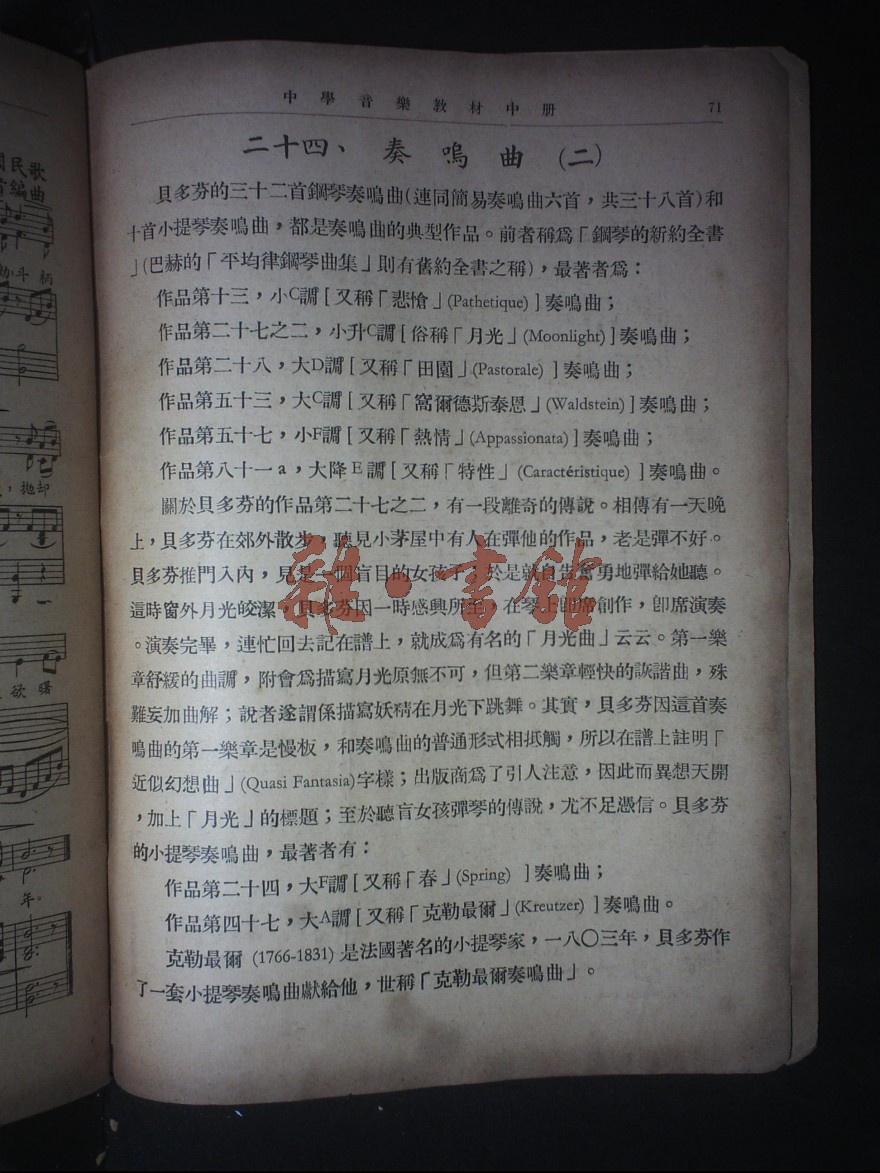 中學音樂教材中册 71
二十四、 奏鳴曲 (二)
貝多芬的三十二首鋼琴奏鳴曲(連同簡易奏鳴曲六首，共三十八首)和
十首小提琴奏鳴曲，都是奏鳴曲的典型作品。前者稱爲「鋼琴的新約全書
」(巴赫的「平均律鋼琴曲集」則有舊約全書之稱)，最著者爲：
作品第十三，小C調[又稱「悲愴」(Pathetique)]奏鳴曲；
作品第二十七之二，小升C調[俗稱「月光」(Moonlight)]奏鳴曲；
作品第二十八，大D調[又稱「田園」(Pastorale)]奏鳴曲；
作品第五十三，大C調[又稱「窩爾德斯泰恩」(Waldstein)]奏鳴曲；
作品第五十七，小F調[又稱「熱情」(Appassionata)]奏鳴曲；
作品第八十一a，大降E調[又稱「特性」(Caractéristique)]奏鳴曲。
關於貝多芬的作品第二十七之二，有一段離奇的傳說。相傳有一天晚
上，貝多芬在郊外散步，聽見小茅屋中有人在彈他的作品，老是彈不好。
貝多芬推門入內，見是一個盲目的女孩子，於是就自告奮勇地彈給她聽。
這時窗外月光皎潔，貝多芬因一時感興所至，在琴上卽席創作，卽席演奏
。演奏完畢，連忙回去記在譜上，就成爲有名的「月光曲」云云。第一樂
章舒緩的曲調，附會爲描寫月光原無不可，但第二樂章輕快的詼諧曲，殊
難妄加曲解；說者遂謂係描寫妖精在月光下跳舞。其實，貝多芬因這首奏
鳴曲的第一樂章是慢板，和奏鳴曲的普通形式相抵觸，所以在譜上註明「
近似幻想曲」(Quasi Fantasia)字樣；出版商爲了引人注意，因此而異想天開
，加上「月光」的標題；至於聽盲女孩彈琴的傳說，尤不足憑信。貝多芬
的小提琴奏鳴曲，最著者有：
作品第二十四，大F調[又稱「春」(Spring)]奏鳴曲；
作品第四十七，大A調[又稱「克勒最爾」(Kreutzer)]奏鳴曲。
克勒最爾 (1766-1831) 是法國著名的小提琴家，一八〇三年，貝多芬作
了一套小提琴奏鳴曲獻給他，世稱「克勒最爾奏鳴曲」。
雜·書館
國民歌
編曲
斗柄
，拋却
欲曙
年。